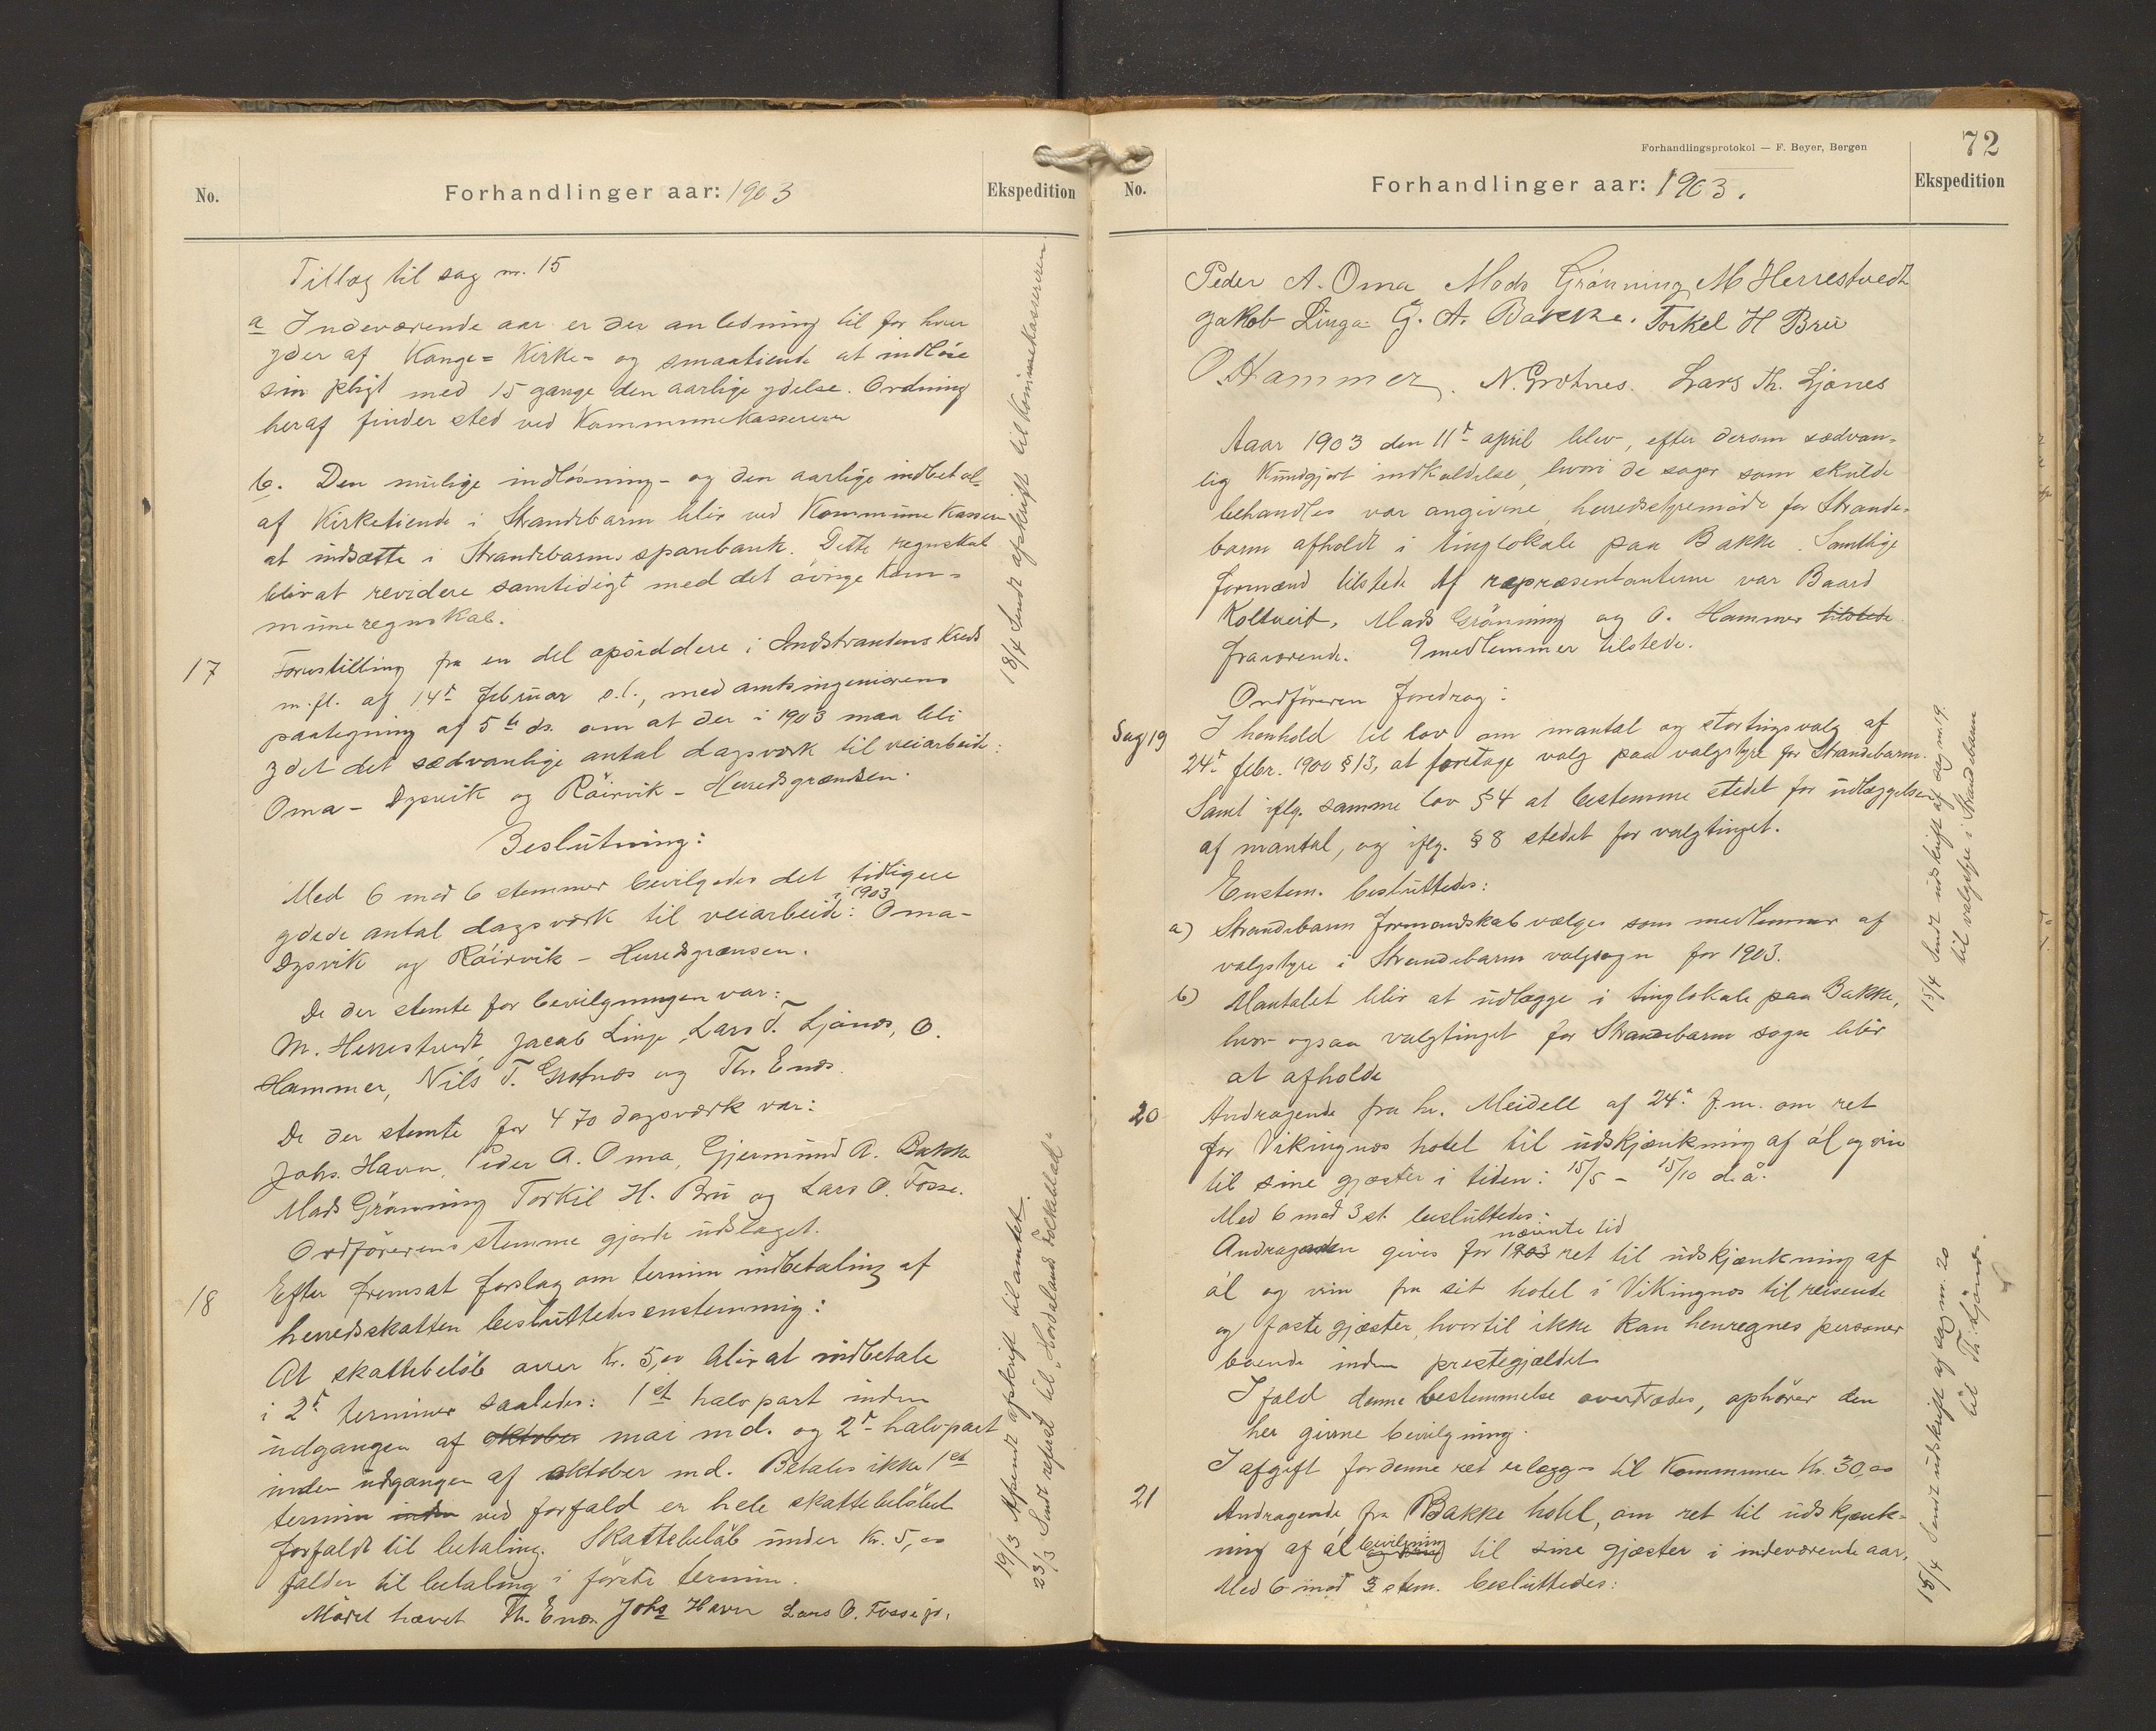 No.
Forhandlinger aar: 1903
Ekspedition
Tillæg til sag nr. 15
a Indeværende aar er der anledning til for hver
yder af Konge- Kirke- og smaatiende at indløse
sin pligt med 15 gange den aarlige ydelse. Ordning
heraf finder sted ved Kommunekassereren
b. Den mulige indløsning- og den aarlige indbetal-
af Kirketiende i Strandebarm blir ved Kommunekasserer
at indsætte i Strandebarms sparebank. Dette regnskab
blir at revidere samtidigt med det övrige kom-
muneregnskab.
18/4 Sendt afskrift til Kommunekassereren.
17
Forestilling fra en del opsiddere i Indstrandens Kreds
m.fl. af 14de februar s.l., med amtsingeniørens
paategning af 5te ds. om at der i 1903 maa bli
ydet det sædvanlige antal dagsværk til veiarbeide:
Oma - Dysvik og Röirvik - Herredsgrændsen.
Beslutning:
Med 6 mod 6 stemmer bevilgedes det tidligere
ydede antal dagsværk til veiarbeide i 1903: Oma-
Dysvik og Röirvik - Herredsgrænsen.
De der stemte for bevilgningen var:
M. Herrestvedt, Jacob Linge, Lars T. Ljönes, O.
Hammer, Nils T. Grotnes og Th. Enes.
De der stemte for 470 dagsværk var:
Johs. Havn, Peder A. Oma, Gjermund A. Bakke
Mads Grönning Torkil H. Bru og Lars O. Fosse.
Ordförerens stemme gjorde udslaget.
19/3 Afsendt afskrift til amtet.
23/3 Sendt referat til "Hordaland Folkeblad"
18
Efter fremsat forslag om termin indbetaling af
herredsskatten besluttedes enstemmig:
At skattebelöb over Kr. 5,00 blir at indbetale
i 2de terminer saaledes: 1ste halvpart inden
udgangen af oktober mai md. og 2de halvpart
inden udgangen af oktober md. Betales ikke 1ste
termin inden ved forfald er hele skattebelöbet
forfaldt til betaling. Skattebelöb under Kr. 5,00
falder til betaling i förste termin.
Mödet hævet Th. Enes Johs Havn Lars O. Fosse
72
Forhandlingsprotokol — F. Beyer, Bergen
No.
Forhandlinger aar: 1903.
Ekspedition
Peder A. Oma Mads Grönning M Herrestvedt
Jakob Linga G. A. Bakke. Torkel H Bru
O. Hammer. N. Grotnes. Lars Th. Ljönes
Aaar 1903 den 11te april blev, efter dersom sædvan-
lig Kundgjort indkaldelse, hvori de sager som skulde
behandles var angivne, herredsstyremöde for Strande-
barm afholdt i tinglokale paa Bakke. Samtlige
formænd tilstede Af repræsentanterne var Baard
Koltveit, Mads Grönning og O. Hammer tilstede
fraværende. 9 medlemmer tilstede.
Ordföreren foredrog:
Sag 19
I henhold til lov om mantal og stortingsvalg af
24de febr. 1900 § 13, at foretage valg paa valgstyre for Strandebarm.
Samt iflg. samme lov § 4 at bestemme stedet for udlæggelsen
af mantal, og iflg. § 8 stedet for valgtinget.
Enstem. besluttedes:
a) Strandebarm formandskab vælges som medlemmer af
valgstyre i Strandebarm valgsogn for 1903.
b) Mantalet blir at udlægge i tinglokale paa Bakke,
hvor ogsaa valgtinget for Strandebarm sogn blir
at afholde
15/4 Sendt udskrift af sag nr. 19.
til valgstyre i Strandebarm
20
Andragende fra hr. Meidell af 24de f.m. om ret
for Vikingnes hotel til udskjænkning af öl og vin
til sine gjæster i tiden: 15/5 - 15/10 d.å.
Med 6 mod 3 st. besluttedes:
Andrageren gives for 1903 nævnte tid ret til udskjænkning af
öl og vin fra sit hotel i Vikingnes til reisende
og faste gjæster, hvortil ikke kan henregnes personer
boende inden prestegjældet
I fald denne bestemmelse overtrædes, ophörer den
her givne bevilgning.
I afgift for denne ret erlægges til Kommunen Kr. 30,00
15/4 Sendt udskrift af sag nr. 20
til Th. Ljönes.
21
Andragende fra Bakke hotel, om ret til udskjænk-
ning af öl og vin bevilgning til sine gjæster i indeværende aar.
Med 6 mod 3 stem. besluttedes: